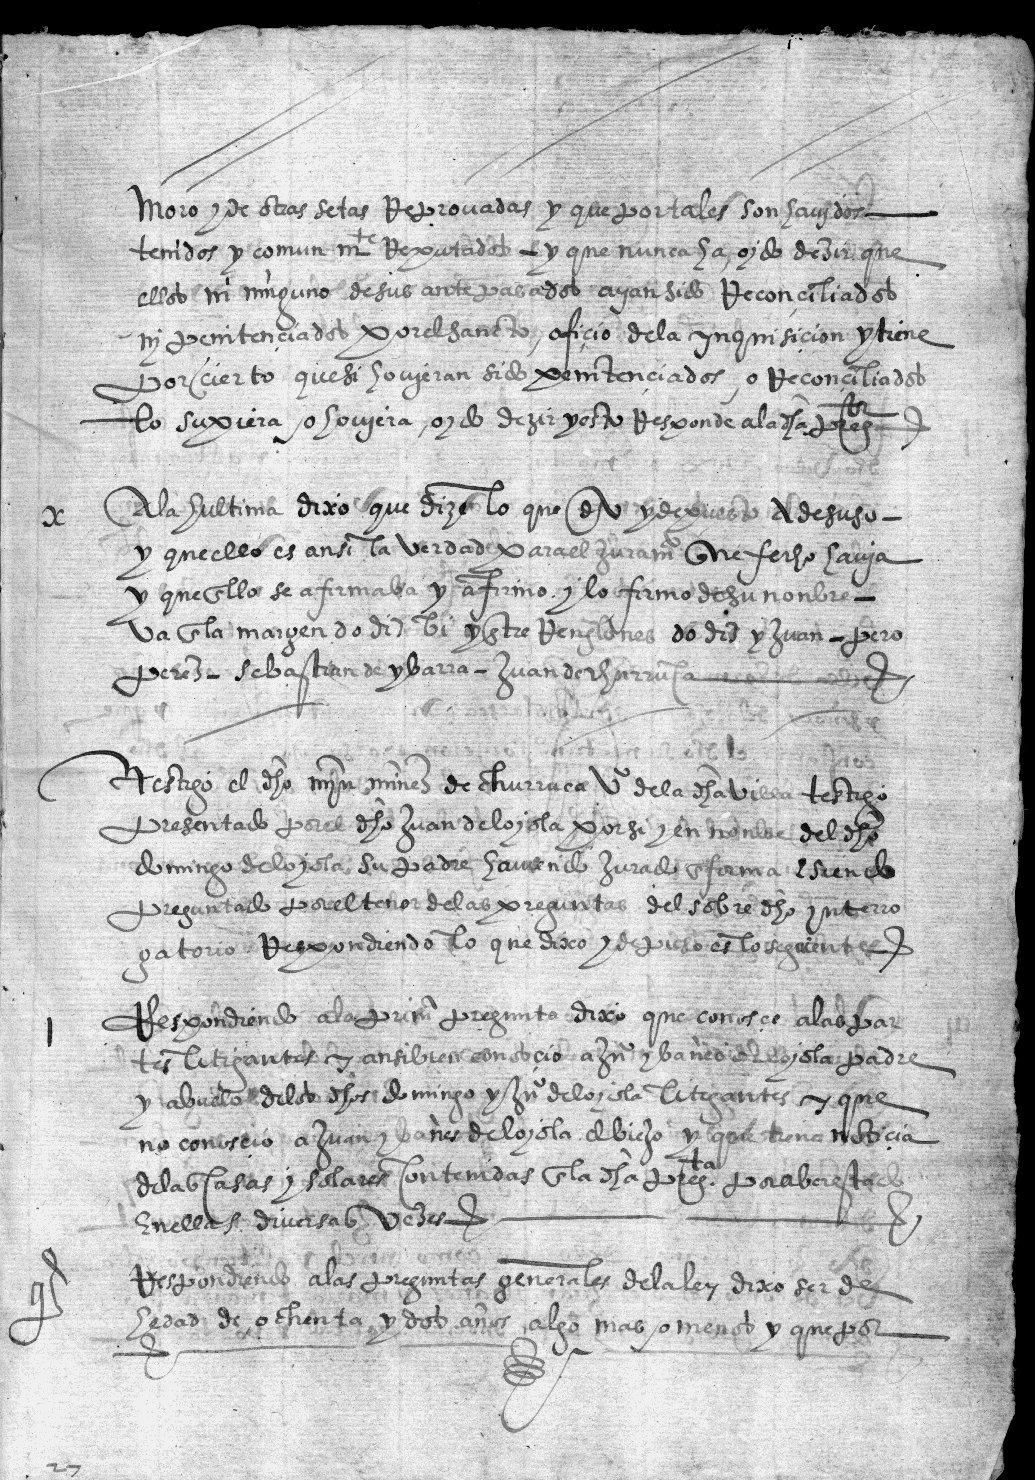 moro y de otras setas Reprouadas y que por tales son hauidos
tenidos y comun mte Reputados y que nunca ha oydo dezir que
ellos ni ninguno de sus antepasados ayan sido Reconciliados
ny penitenciados por el sancto oficio de la ynquisicion y tiene
por cierto que si houieran sido penitenciados o Reconciliados
lo supiera o houiera oydo dezir y esto Responde a la dha preg
x A la hultima dixo que dize lo que y depuesto de suso
y que ello es ansi la verdad para el juramto que fecho hauia
y que en ello se afirmaba y afirmo y lo firmo de su nonbre
va en la margen do diz y entre Renglones do diz y Juan pero
perez sebastian de ybarra Juan de churruca
Testigo el dho mnz de churruca vo de la dha villa testigo
presentado por el dho Juan de loyola por si y en nonbre del dho
domingo de loyola su padre hauiendo jurado en forma e siendo
preguntado por el tenor de las preguntas del sobre dho ynterro
gatorio Respondiendo lo que dixo y depuso es lo seguiente
1 Respondiendo a la prima pregunta dixo que conosce a las par
tes litigantes y ansi bien conoscio a Jun ybanes de loyola padre
y abuelo de los dhos domingo y Jun de loyola litigantes y que
no conoscio a Juan ybanes de loyola el biejo y que tiene noticia
de las casas y solares contenidas en la dha pregta por aber estado
en ellas diversas vezes
gs Respondiendo a las preguntas generales de la ley dixo ser de
hedad de ochenta y dos años algo mas o menos y que por
27